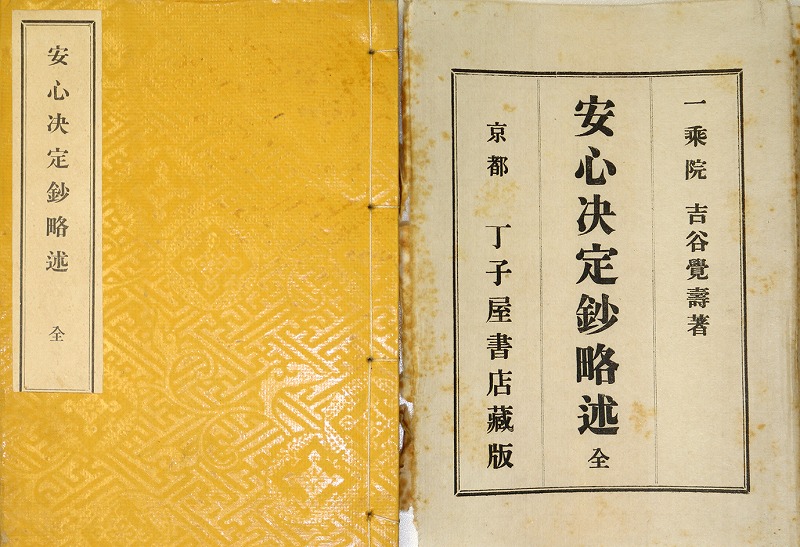 安心决定鈔略述 全
一乘院 吉谷覺壽著
安心决定鈔略述 全
京都 丁子屋書店藏版